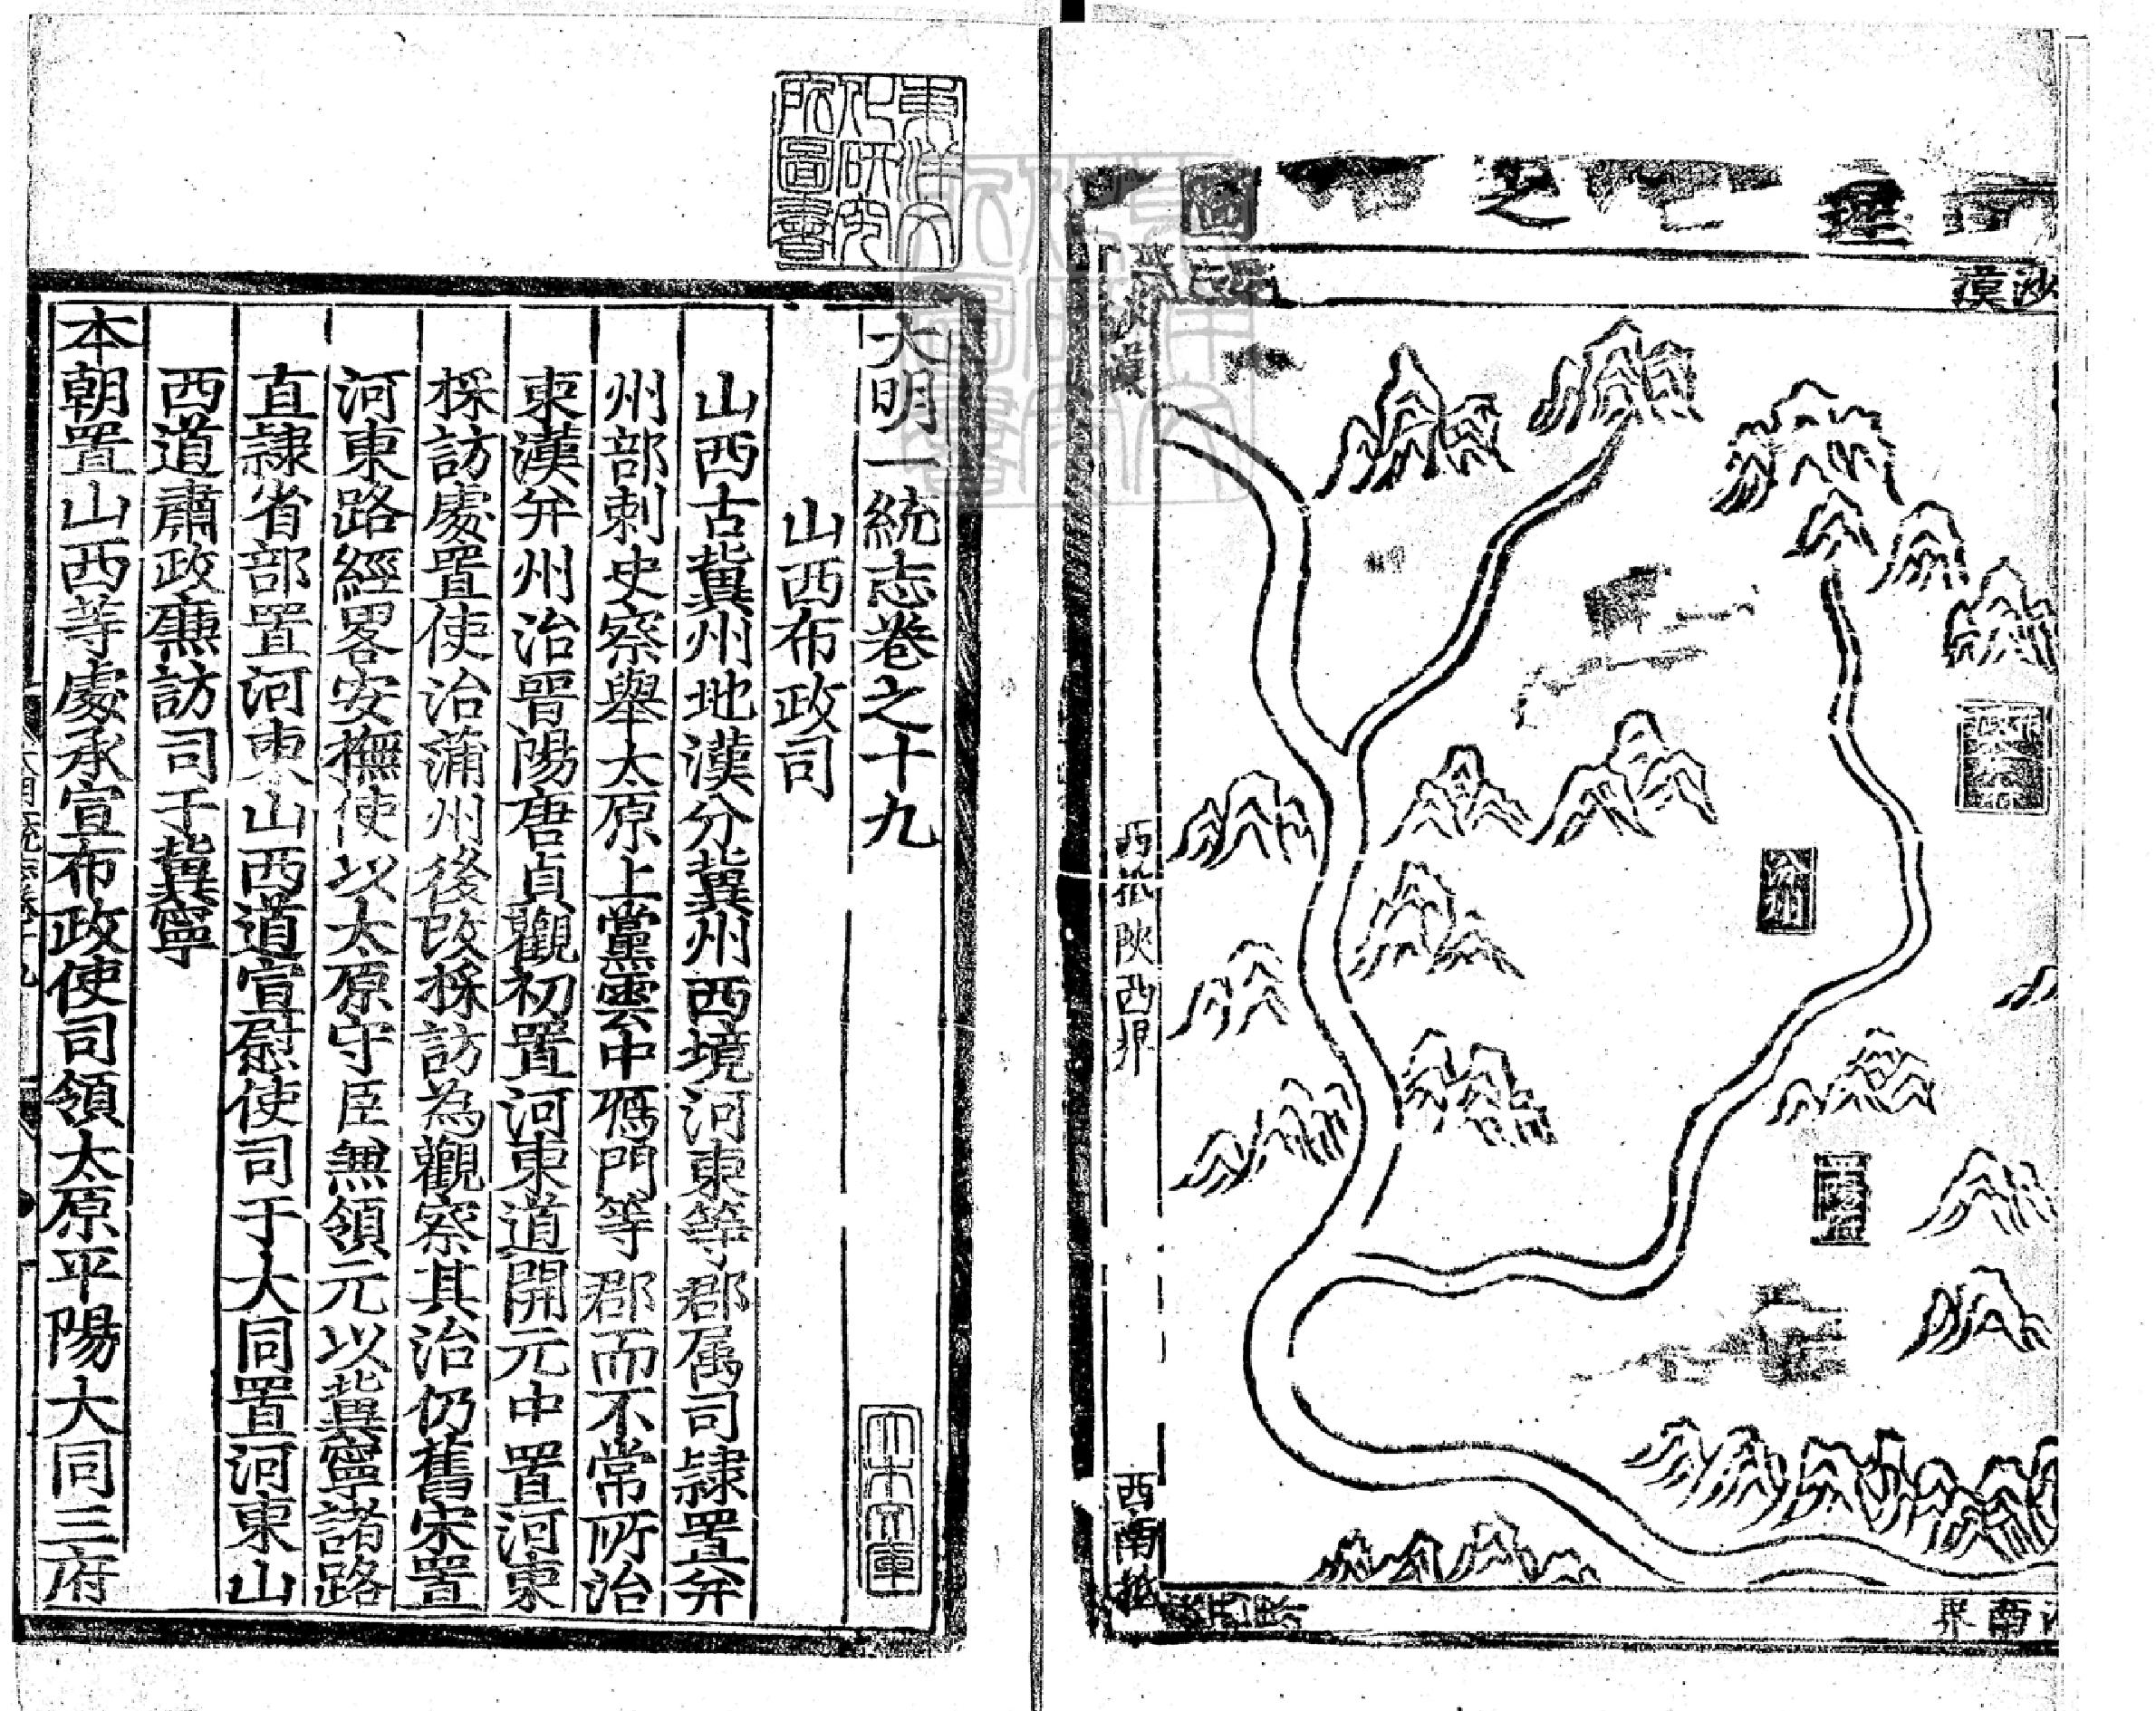 理之圖
沙漠
西抵陝西界
汾州
西南抵
南界
東洋文化研究所圖書
大明一統志卷之十九
山西布政司
山西古冀州地漢分冀州西境河東等郡属司隷置并
州部刺史察舉太原上黨雲中鴈門等郡而不常所治
東漢并州治晋陽唐貞觀初置河東道開元中置河東
採訪處置使治蒲州後改採訪為觀察其治仍舊宋置
河東路經畧安撫使以太原守臣無領元以冀寧諸路
直隷省部置河東山西道宣慰使司于大同置河東山
西道肅政廉訪司于冀寧
本朝置山西等處承宣布政使司領太原平陽大同三府
大木文庫